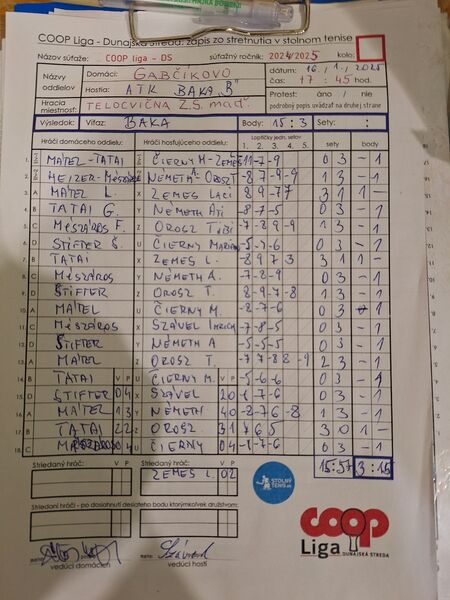 COOP Liga - Dunajská Streda: zápis zo stretnutia v stolnom tenise
Názov súťaže: COOP liga - DS súťažný ročník: 2024/2025 kolo:
Názvy oddielov Domáci: GABČÍKOVO dátum: 16/1/2025
Hostia: ATK BAKA "B" čas: 17:45 hod.
Hracia miestnosť: TELOCVIČNA Z.Š. maď. Protest: áno / nie
podrobný popis uvádzať na druhej strane
Výsledok: Víťaz: BAKA Body: 15:3 Sety: :
Hráči domáceho oddielu: Hráči hosťujúceho oddielu: Loptičky jedn. setov sety body
1. 2. 3. 4. 5.
1. MATEL-TATAI ČIERNY M-ZEMEŠ -11-7-9 03 -1
2. MEIZER-Mészáros NÉMETH A-OROSZ T -8 7-9-9 13 -1
3. A MATEL L. X ZEMES LACI 8 9-7 7 31 1-
4. B TATAI G. Y NÉMETH ATI -8-7-5 03 -1
5. C MÉSZÁROS F. Z OROSZ TIBI -7-8 9-9 13 -1
6. D STIFTER Š. U ČIERNY MARIAN -5-7-6 03 -1
7. B TATAI X ZEMES L. -8 9 7 3 31 1-
8. C MÉSZÁROS Y NÉMETH A. -7-8-9 03 -1
9. D STIFTER Z OROSZ T. -8-9 7-8 13 -1
10. A MATEL U ČIERNY M. -8-7-6 03 -1
11. C Mészáros X SZAVEL IMRICH -7-8-5 03 -1
12. D STIFTER Y NÉMETH A -5-5-4 03 -1
13. A MATEL Z OROSZ T. -7-7 8 8-9 23 -1
14. B TATAI V P U ČIERNY M. V P -5-6-6 03 -1
15. D STIFTER 04 X SZAVEL 20 -6-7-6 03 -1
16. A MATEL 13 Y NÉMETH 40 -8-7 6-8 13 -1
17. B TATAI 22 Z OROSZ 31 7 6 5 30 1-
18. C MÉSZÁROS 04 U ČIERNY 04 -8-7-6 03 -1
Striedaný hráč: V P Striedaný hráč: V P 15:57 3:15
ZEMES L. 02
STOLNÝ TENIS.SK
Striedaní hráči - po dosiahnutí desiateho bodu ktorýmkoľvek družstvom:
coop
Liga DUNAJSKÁ STREDA
vedúci domácich vedúci hostí